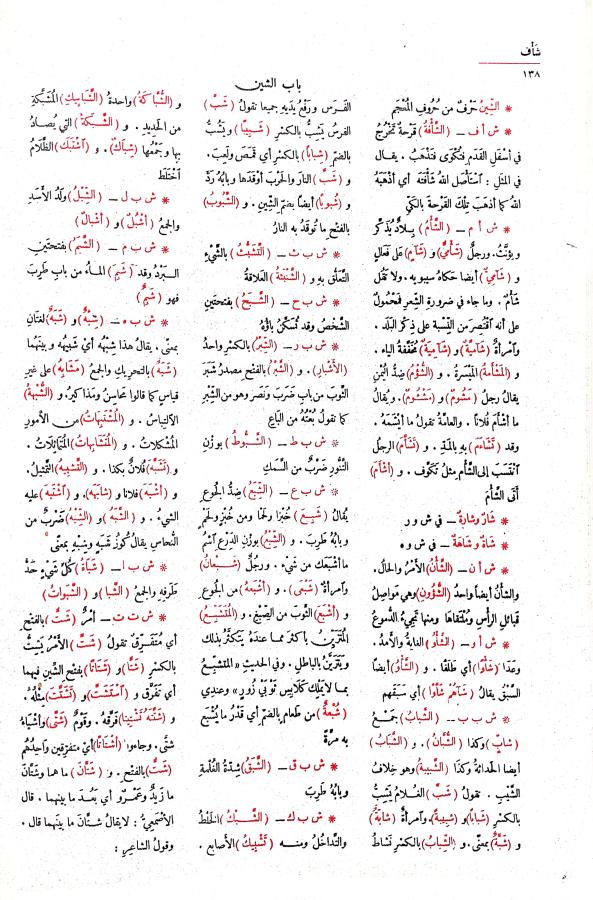 شأف
١٣٨
باب الشين
* الشِّينُ حَرْفٌ من حُرُوفِ المُعْجَمِ
* ش أ ف – (الشَّأْفَةُ) قَرْحَةٌ تَخْرُجُ
في أسْفَلِ القَدَمِ فتُكْوَى فتَذْهَبُ . يقال
في المَثَلِ : آسْتَأْصَلَ اللهُ شَأْفَتَهُ أي أذْهَبَهُ
اللهُ كما أذهَبَ تِلْكَ القَرْحةَ بالكَيّ
* ش أ م – (الشَّأْمُ) بِلادٌ يُذَكَّر
ويؤنَّثُ. ورجلٌ (شَأْمِيٌّ) و (شَآمٍ) على فَعَالٍ
و (شَآمِيٌّ) أيضا حكاه سيبويه . ولا تَقُل
شَأْمٌ. وما جاء في ضرورةِ الشِّعرِ فمَحْمُولٌ
على أنه آقتُصِرَ من النِّسبة على ذِكرِ البَلَد .
وآمرأةٌ (شَأْمِيَّةٌ) و (شَآمِيَةٌ) مُخَفَّفةُ الياء .
و (المَشْأَمةُ) المَيْسَرةُ . و (الشُّؤْمُ) ضِدُّ اليُمْنِ
يقالُ رجلٌ (مَشُومٌ) و (مَشْئُومٌ). ويُقالُ
ما أشْأمَ فُلانا . والعامَّةُ تقولُ ما أيْشَمَهُ .
وقد (تَشَاءَمَ) به بالمَدّ . و (تَشَأَّمَ) الرجلُ
آنتَسَبَ إلى الشَّأْم مثلُ تَكَوَّفَ . و (أشْأَمَ)
أتَى الشَّأْمَ
* شَارٌ وشارةٌ – في ش و ر
* شاةٌ وشاهَةٌ – في ش و ه
* ش أ ن – (الشَّأْنُ) الأمرُ والحالُ.
والشأنُ أيضاً واحدُ (الشُّؤُونِ) وهي مَوَاصِلُ
قَبائلِ الرأسِ ومُلْتقاها ومنها تَجِيءُ الدُّموعُ
* ش أ و – (الشَّأْوُ) الغايةُ والأمدُ.
وعَدَا (شَأْوًا) أي طَلَقًا . و (الشَّأْوُ) أيضاً
السَّبْقُ يقالُ (شَآهُمْ شَأْوًا) أي سَبَقَهم
* ش ب ب – (الشَّبَابُ) جَمْعُ
(شابٍّ) وكذا (الشُّبَّانُ) . و (الشَّبَابُ)
أيضا الحَدَاثةُ وكذا (الشَّبِيبةُ) وهو خِلافُ
الشَّيْبِ . تقولُ (شَبَّ) الغُلامُ يَشِبُّ
بالكسرِ (شَبَابًا) و (شَبِيبةً). وآمرأةٌ (شابّةٌ)
و (شَبَّةٌ) بمعنًى . و (الشِّبابُ) بالكسْرِ نَشَاطُ
الفَرَس ورَفْعُ يَدَيهِ جميعا تقولُ (شَبَّ)
الفرسُ يَشِبُّ بالكسْرِ (شَبِيبًا) ويَشُبُّ
بالضمّ (شِبابًا) بالكسرِ أي قَمَصَ ولَعِبَ.
و (شَبَّ) النارَ والحَرْبَ أوْقَدَها وبابُهُ رَدَّ
و (شُبوبًا) أيضاً بضمّ الشِّين . و (الشَّبُوبُ)
بالفتح ما تُوقَدُ به النارُ
* ش ب ث – (التَّشَبُّثُ) بالشَّيْءِ
التَّعلُّق به و (الشَّبَثَةُ) العَلَاقةُ
* ش ب ح – (الشَّبَحُ) بفتحتين
الشَّخْصُ وقد تُسكَّنُ باؤُهُ
* ش ب ر – (الشِّبْرُ) بالكسرِ واحدُ
(الأشْبارِ) . و (الشَّبْرُ) بالفتح مصدرُ شَبَرَ
الثَّوبَ من بابِ ضَرَبَ ونَصَر وهو من الشِّبرِ
كما تقولُ بُعْتُه من الباعِ
* ش ب ط – (الشَّبُّوطُ) بوزنِ
التَّنُّورِ ضَرْبٌ من السَّمَكِ
* ش ب ع – (الشِّبَعُ) ضِدُّ الجُوعِ
يُقالُ (شَبِعَ) خُبْزًا ولَحْمًا ومن خُبْزٍ ولَحْمٍ
وبابُهُ طَرِبَ . و (الشِّبْعُ) بوزنِ الدِّرْعِ آسْمُ
ما أشْبَعَك من شيْءٍ . ورجلٌ (شَبْعانُ)
وآمرأةٌ (شَبْعَى) . و (أشْبَعَهُ) من الجُوعِ
و (أشْبَعَ) الثَّوبَ من الصِّبْغِ. و (المُتَشَبِّعُ)
المُتَزَيِّنُ بأكثرَ مما عندَهُ يتَكَثَّرُ بذلك
ويَتَزَيَّنُ بالباطِلِ . وفي الحديثِ «المُتشبِّعُ
بما لا يَمْلِكُ كَلابِسِ ثَوْبَيْ زُورٍ» وعندي
(شُبْعةٌ) من طعامٍ بالضمّ أي قَدْرُ ما يُشْبَعُ
به مرّةً
* ش ب ق – (الشَّبَقُ) شِدّةُ الغُلْمةِ
وبابُهُ طَرِبَ
* ش ب ك – (الشَّبْكُ) الخَلْطُ
والتَّداخُلُ ومنـه (تَشْبِيكُ) الأصابعِ .
و (الشُّبَّاكَةُ) واحدةُ (الشَّبَابِيكِ) المُشَبَّكةِ
من الحديدِ . و (الشَّبَكةُ) التي يُصادُ
بها وجَمْعُها (شِبَاكٌ) . و (آشْتَبَكَ) الظَّلامُ
آخْتَلَطَ
* ش ب ل – (الشِّبْلُ) ولَدُ الأسَدِ
والجمعُ (أشْبُلٌ) و (أشْبالٌ)
* ش ب م – (الشَّبَمُ) بفتحتين
البَـرْدُ وقد (شَبِمَ) المـاءُ من بابِ طَرِبَ
فهو (شَبِمٌ)
* ش ب ه – (شِبْهٌ) و (شَبَهٌ) لغتانِ
بمعنًى . يقالُ هذا شِبْهُه أي شَبيهُه وبينَهما
(شَبَهٌ) بالتحريكِ والجمعُ (مَشَابِهُ) على غيرِ
قياسٍ كما قالوا مَحَاسِنُ ومَذاكيرُ. و(الشُّبْهةُ)
الآلتباسُ . و (المُشْتَبِهاتُ) من الأمورِ
المُشْكِلاتُ . و (المُتَشَابِهاتُ) المُتَمَاثِلاتُ .
و (تَشَبَّهَ) فلانٌ بكذا . و (التَّشْبِيهُ) التمثيلُ.
و (أشْبَهَ) فلانا و (شَابَهَهُ) . و (آشْتَبَهَ) عليه
الشيءُ . و (الشَّبَهُ) و (الشِّبْهُ) ضَرْبٌ من
النُّحاسِ يقالُ كُوزُ شَبَهٍ وشِبْهٍ بمعنًى
* ش ب ا – (شَبَاةُ) كُلِّ شيءٍ حَدُّ
طَرَفِهِ والجمعُ (الشَّبَا) و (الشَّبَوَاتُ)
* ش ت ت – أمْرٌ (شَتٌّ) بالفتح
أي مُتَفرِّقٌ تقولُ (شَتَّ) الأمْرُ يَشِتُّ
بالكسْرِ (شَتًّا) و (شَتَاتًا) بفتح الشينِ فيهما
أي تَفَرَّقَ و (آسْتَشَتَّ) و (تَشَتَّتَ) مِثْلُهُ.
و (شَتَّتَهُ تَشْتِيتًا) فَرَّقَهُ . وقومٌ (شَتَّى) وأشْياءُ
شَتَّى . وجاءوا (أشْتَاتًا) أيْ متفرِّقين واحِدُهُم
(شَتٌّ) بالفتحِ . و (شَتَّانَ) ما هما وشَتَّانَ
ما زَيدٌ وعَمْرٌو أي بَعُدَ ما بينَهما . قال
الأصْمَعِيُّ : لا يقالُ شَتَّانَ ما بينَهما قال .
وقولُ الشاعرِ :